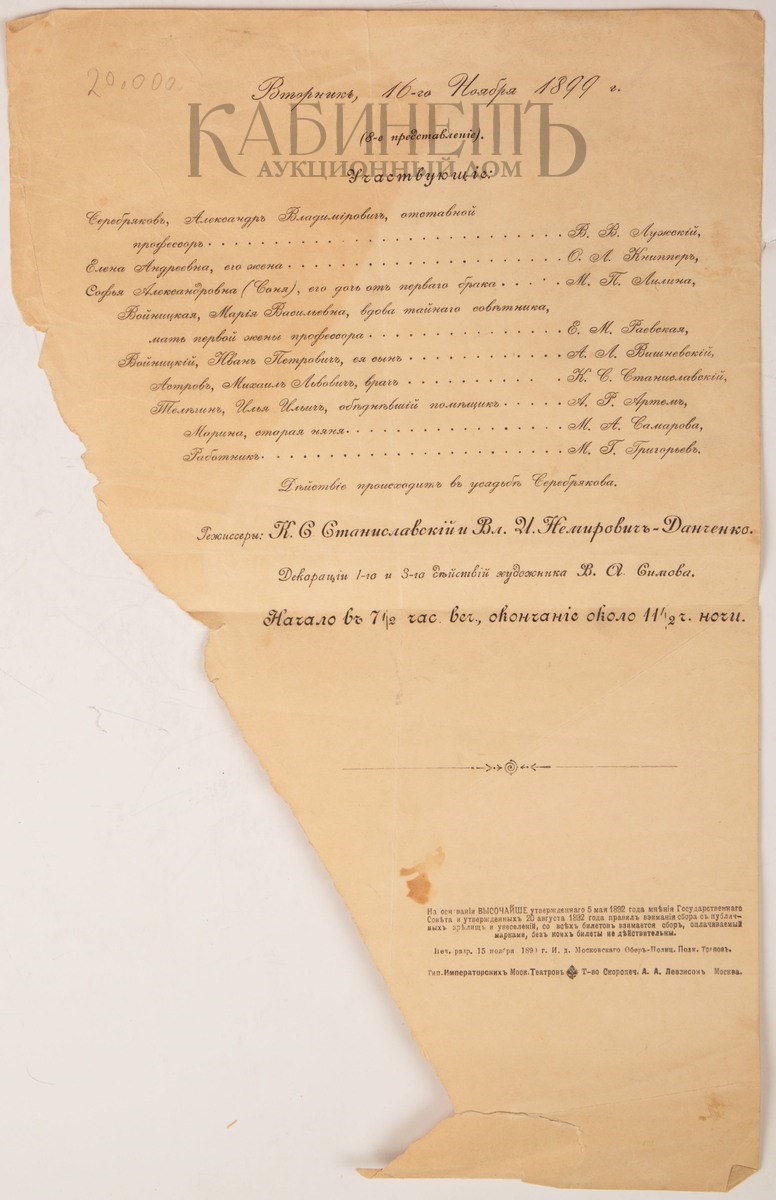 20.000
Вторникъ, 16-го Ноября 1899 г.
КАБИНЕТЪ
(8-е представленіе).
АУКЦИОННЫЙ ДОМ
Участвующіе:
Серебряковъ, Александръ Владиміровичъ, отставной
профессоръ . . . . . . . . . . . . . . . . . . . . В. В. Лужскій,
Елена Андреевна, его жена . . . . . . . . . . . . . . . О. Л. Книпперъ,
Софья Александровна (Соня), его дочь отъ перваго брака . . . . М. П. Лилина,
Войницкая, Марія Васильевна, вдова тайнаго совѣтника,
мать первой жены профессора . . . . . . . . . . . Е. М. Раевская,
Войницкій, Иванъ Петровичъ, ея сынъ . . . . . . . . . А. Л. Вишневскій,
Астровъ, Михаилъ Львовичъ, врачъ . . . . . . . . . К. С. Станиславскій,
Телѣгинъ, Илья Ильичъ, обѣднѣвшій помѣщикъ . . . . . А. Р. Артемъ,
Марина, старая няня . . . . . . . . . . . . . . М. А. Самарова,
Работникъ . . . . . . . . . . . . . . . . . . М. Г. Григорьевъ.
Дѣйствіе происходитъ въ усадьбѣ Серебрякова.
Режиссеры: К. С Станиславскій и Вл. И. Немировичъ-Данченко.
Декораціи 1-го и 3-го дѣйствій художника В. А. Симова.
Начало въ 7 1/2 час. веч., окончаніе около 11 1/2 ч. ночи.
На основаніи ВЫСОЧАЙШЕ утвержденнаго 5 мая 1892 года мнѣнія Государственнаго
Совѣта и утвержденныхъ 20 августа 1892 года правилъ взиманія сбора съ публич-
ныхъ зрѣлищъ и увеселеній, со всѣхъ билетовъ взимается сборъ, оплачиваемый
марками, безъ коихъ билеты не дѣйствительны.
Печ. разр. 15 ноября 1899 г. И. д. Московскаго Оберъ-Полиц. Полк. Треповъ.
Тип. Императорскихъ Моск. Театровъ Т-во Скоропеч. А. А. Левенсонъ Москва.